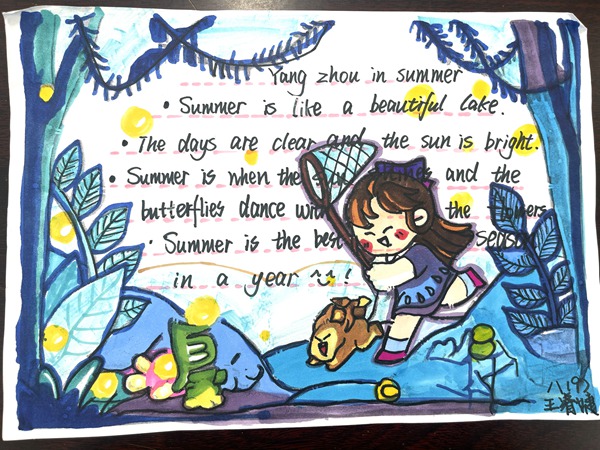 Yang zhou in summer
• Summer is like a beautiful lake.
• The days are clear and the sun is bright.
• Summer is when the and the
butterflies dance with the flowers
• Summer is the best season
in a year ~~!
八(9)
王